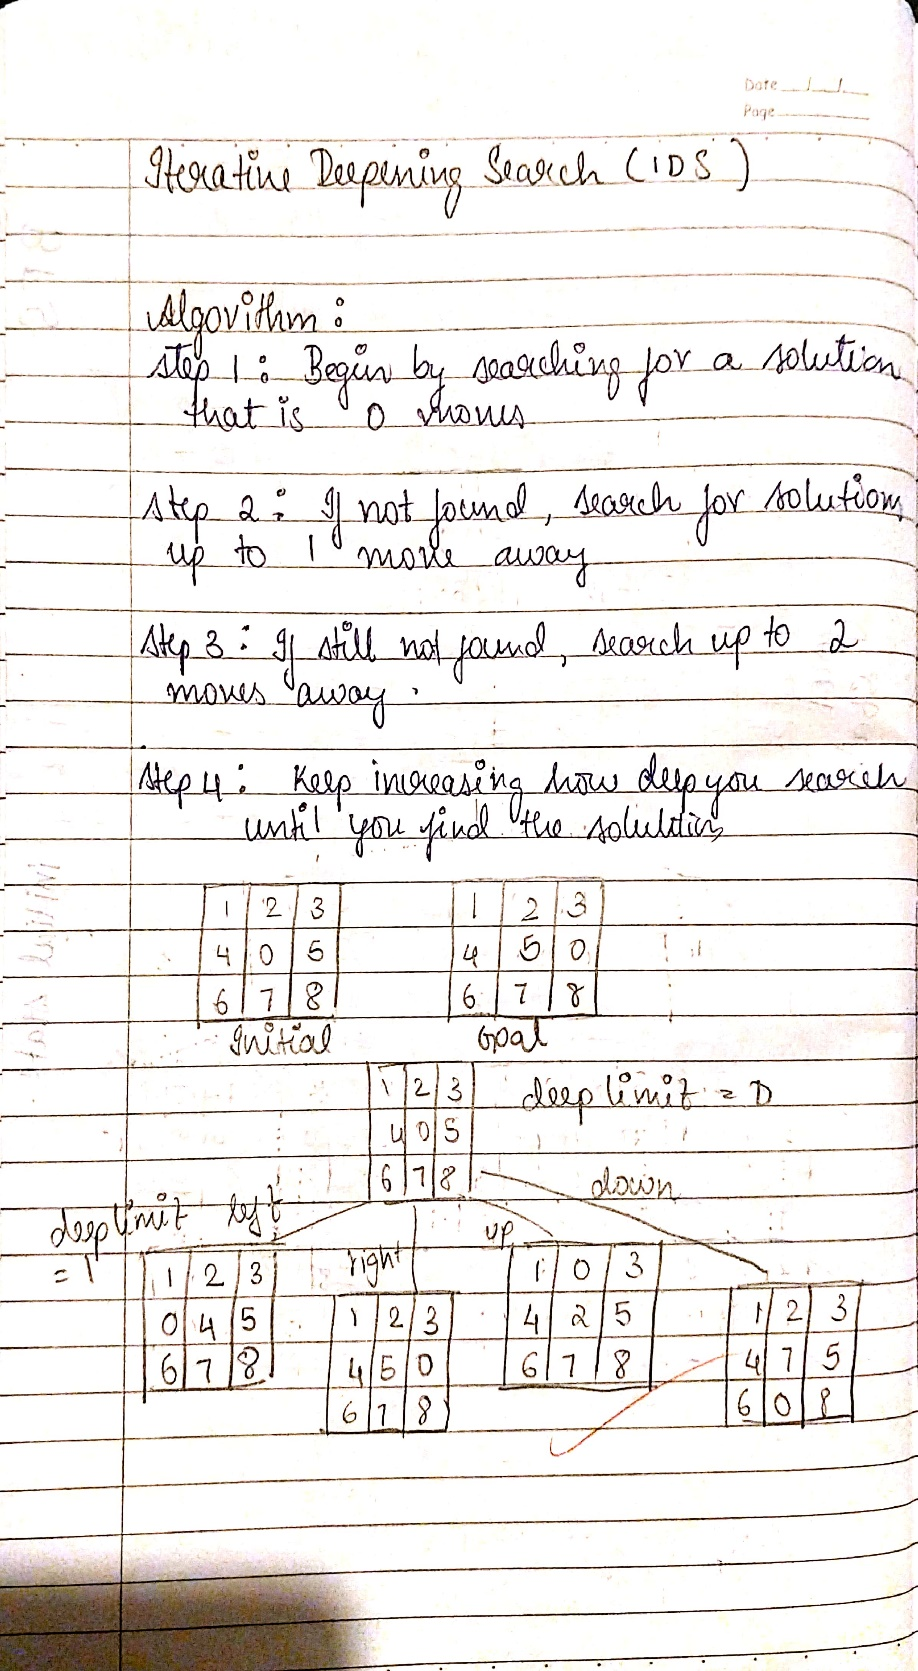 Date
Page
Iterative Deepening Search (IDS)
Algorithm :
Step 1 : Begin by searching for a solution
that is 0 moves
Step 2 : If not found, search for solution
up to 1 move away
Step 3 : If still not found, search up to 2
moves away.
Step 4 : Keep increasing how deep you search
until you find the solution
1 2 3
4 0 5
6 7 8
Initial
1 2 3
4 5 0
6 7 8
Goal
1 2 3
4 0 5
6 7 8
deep limit = 0
deep limit
= 1
left
right
up
down
1 2 3
0 4 5
6 7 8
1 2 3
4 5 0
6 7 8
1 0 3
4 2 5
6 7 8
1 2 3
4 7 5
6 0 8